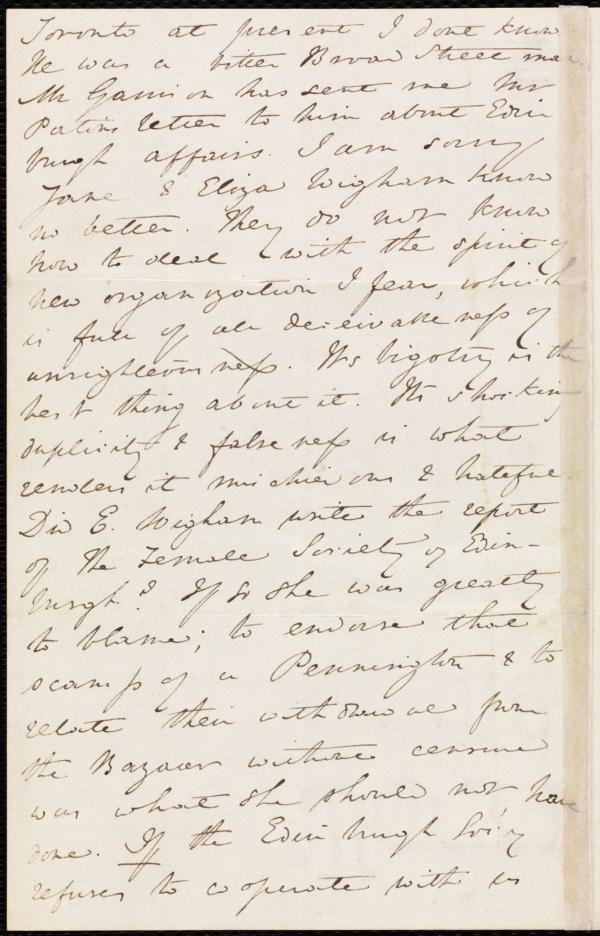 Toronto at present I dont know
He was a bitter Broad Street man.
Mr Garrison has sent me Mr
Patons letter to him about Edin
burgh affairs. I am sorry
Jane & Eliza Wigham know
no better. They do not know
how to deal with the spirit of
new organization I fear, which
is full of all deceivableness of
unrighteousness. Its bigotry is the
best thing about it. Its shocking
duplicity & falseness is what
renders it mischievous & hateful.
Did E. Wigham write the report
of the Female Society of Edin-
burgh? If so she was greatly
to blame; to endorse that
scamp of a Pennington & to
relate their withdrawal from
the Bazaar without censure
was what she should not have
done. If the Edinburgh Soc'y
refuses to cooperate with us